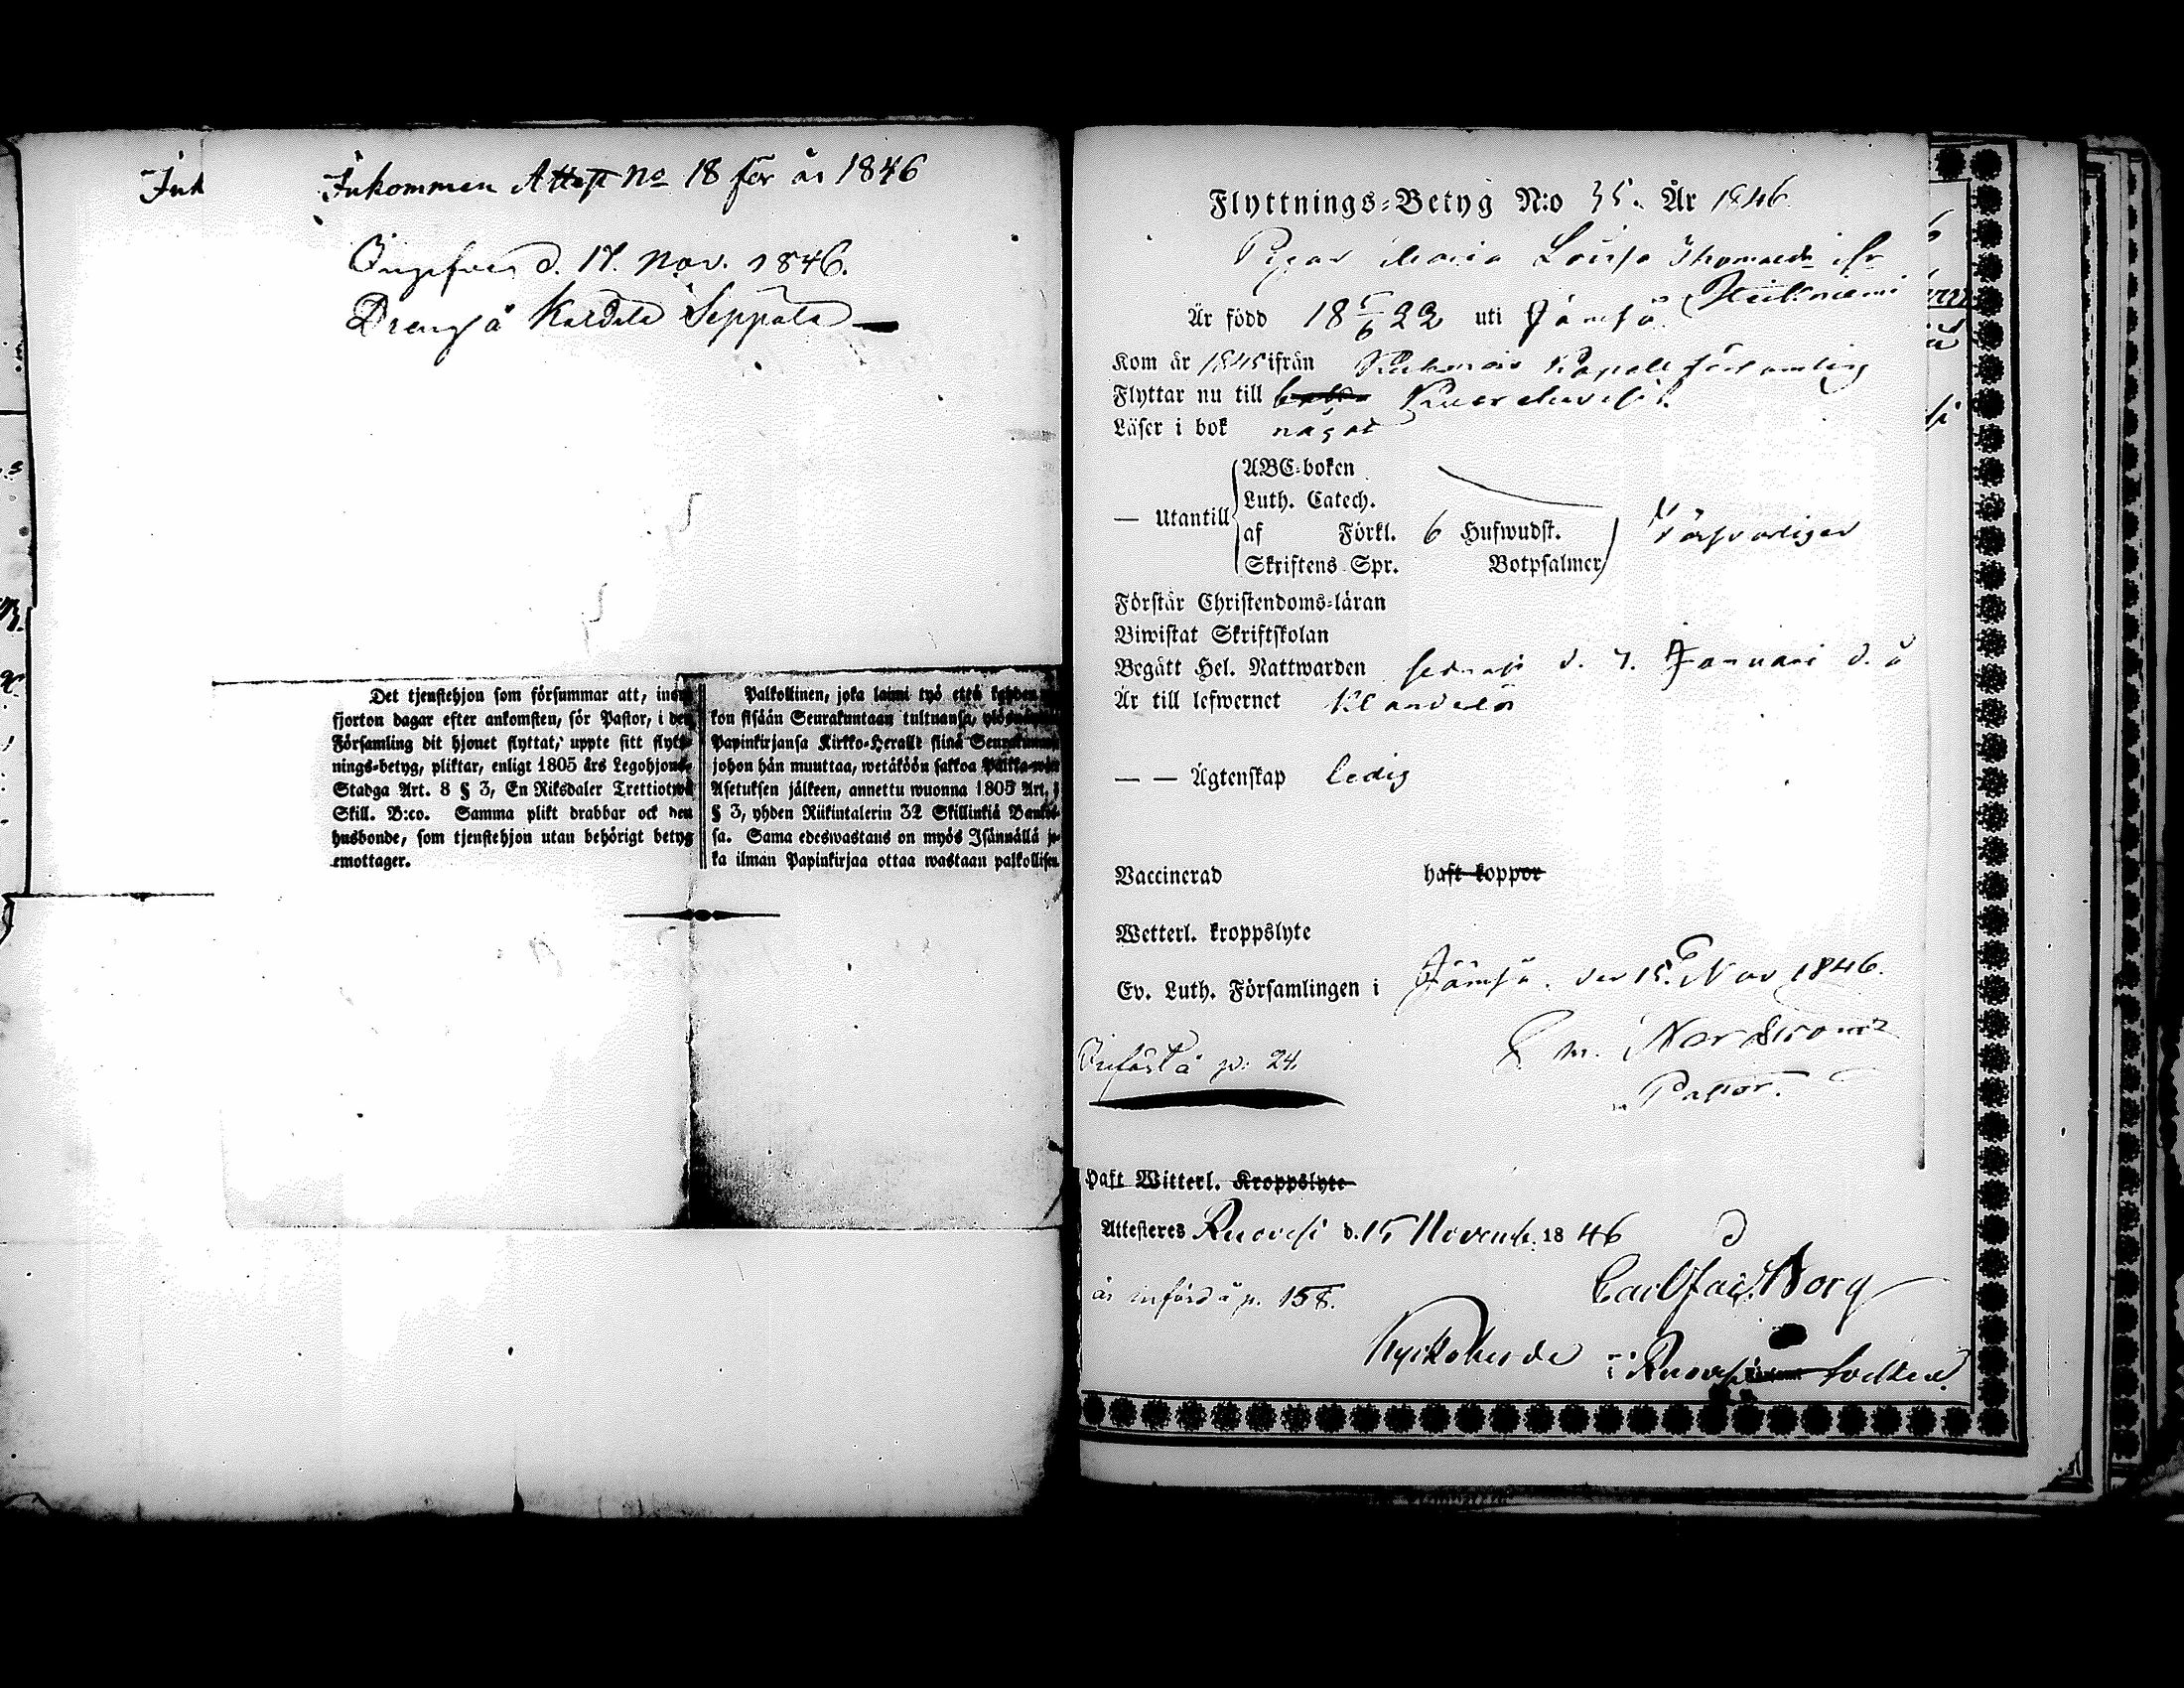 Ink
Inkommen Attest No 18 för år 1846
d. 17. Nov. 1846.
Dreng å Kaidila Seppälä
Det tjenstehjon som försummar att, in
fjorton dagar efter ankomsten, för Pastor, i den
Församling dit hjonet flyttat, uppte sitt flytt-
nings-betyg, pliktar, enligt 1805 års Legohjons-
Stadga Art. 8 § 3, En Riksdaler Trettiotwå
Skill. B:co. Samma plikt drabbar ock den
husbonde, som tjenstehjon utan behörigt betyg
emottager.
Palkollinen, joka laimi työ että
kon sisään Seurakuntaan tultuansa,
Papinkirjansa Kirkko-Heralle siinä
johon hän muuttaa, wetäköön sakkoa
Asetuksen jälkeen, annettu wuonna 1805 Art.
§ 3, yhden Riikintalerin 32 Skillinkiä Banko-
sa. Sama edeswastaus on myös Isännällä jo-
ka ilman Papinkirjaa ottaa wastaan palkollisen
Flyttnings-Betyg N:o 35. År 1846.
Pigan Maria Lovisa Thomasdr ifr
Är född 18 5/6 22 uti Jämsä
Kom år 1845 ifrån Kapell församling
Flyttar nu till Kuorehvesi.
Läser i bok något
— Utantill
ABC-boken
Luth. Catech.
af Förkl. 6 Hufwudst.
Skriftens Spr. Botpsalmer
Försvarligen
Förstår Christendoms-läran
Biwistat Skriftskolan
Begått Hel. Nattwarden sednast d. 7. Januari d. å
Är till lefwernet Klanderlös
— — Ägtenskap ledig
Vaccinerad haft koppor
Wetterl. kroppslyte
Ev. Luth. Församlingen i Jämsä. den 15. Nov 1846.
m. Nordström
Införd å p: 24.
Pastor.
haft Witterl. Kroppslyte
Attesteres Ruovesi d. 15 Novemb. 18 46
Carl Borg
är införd å p. 158.
Kyrkoherde i Ruovesi